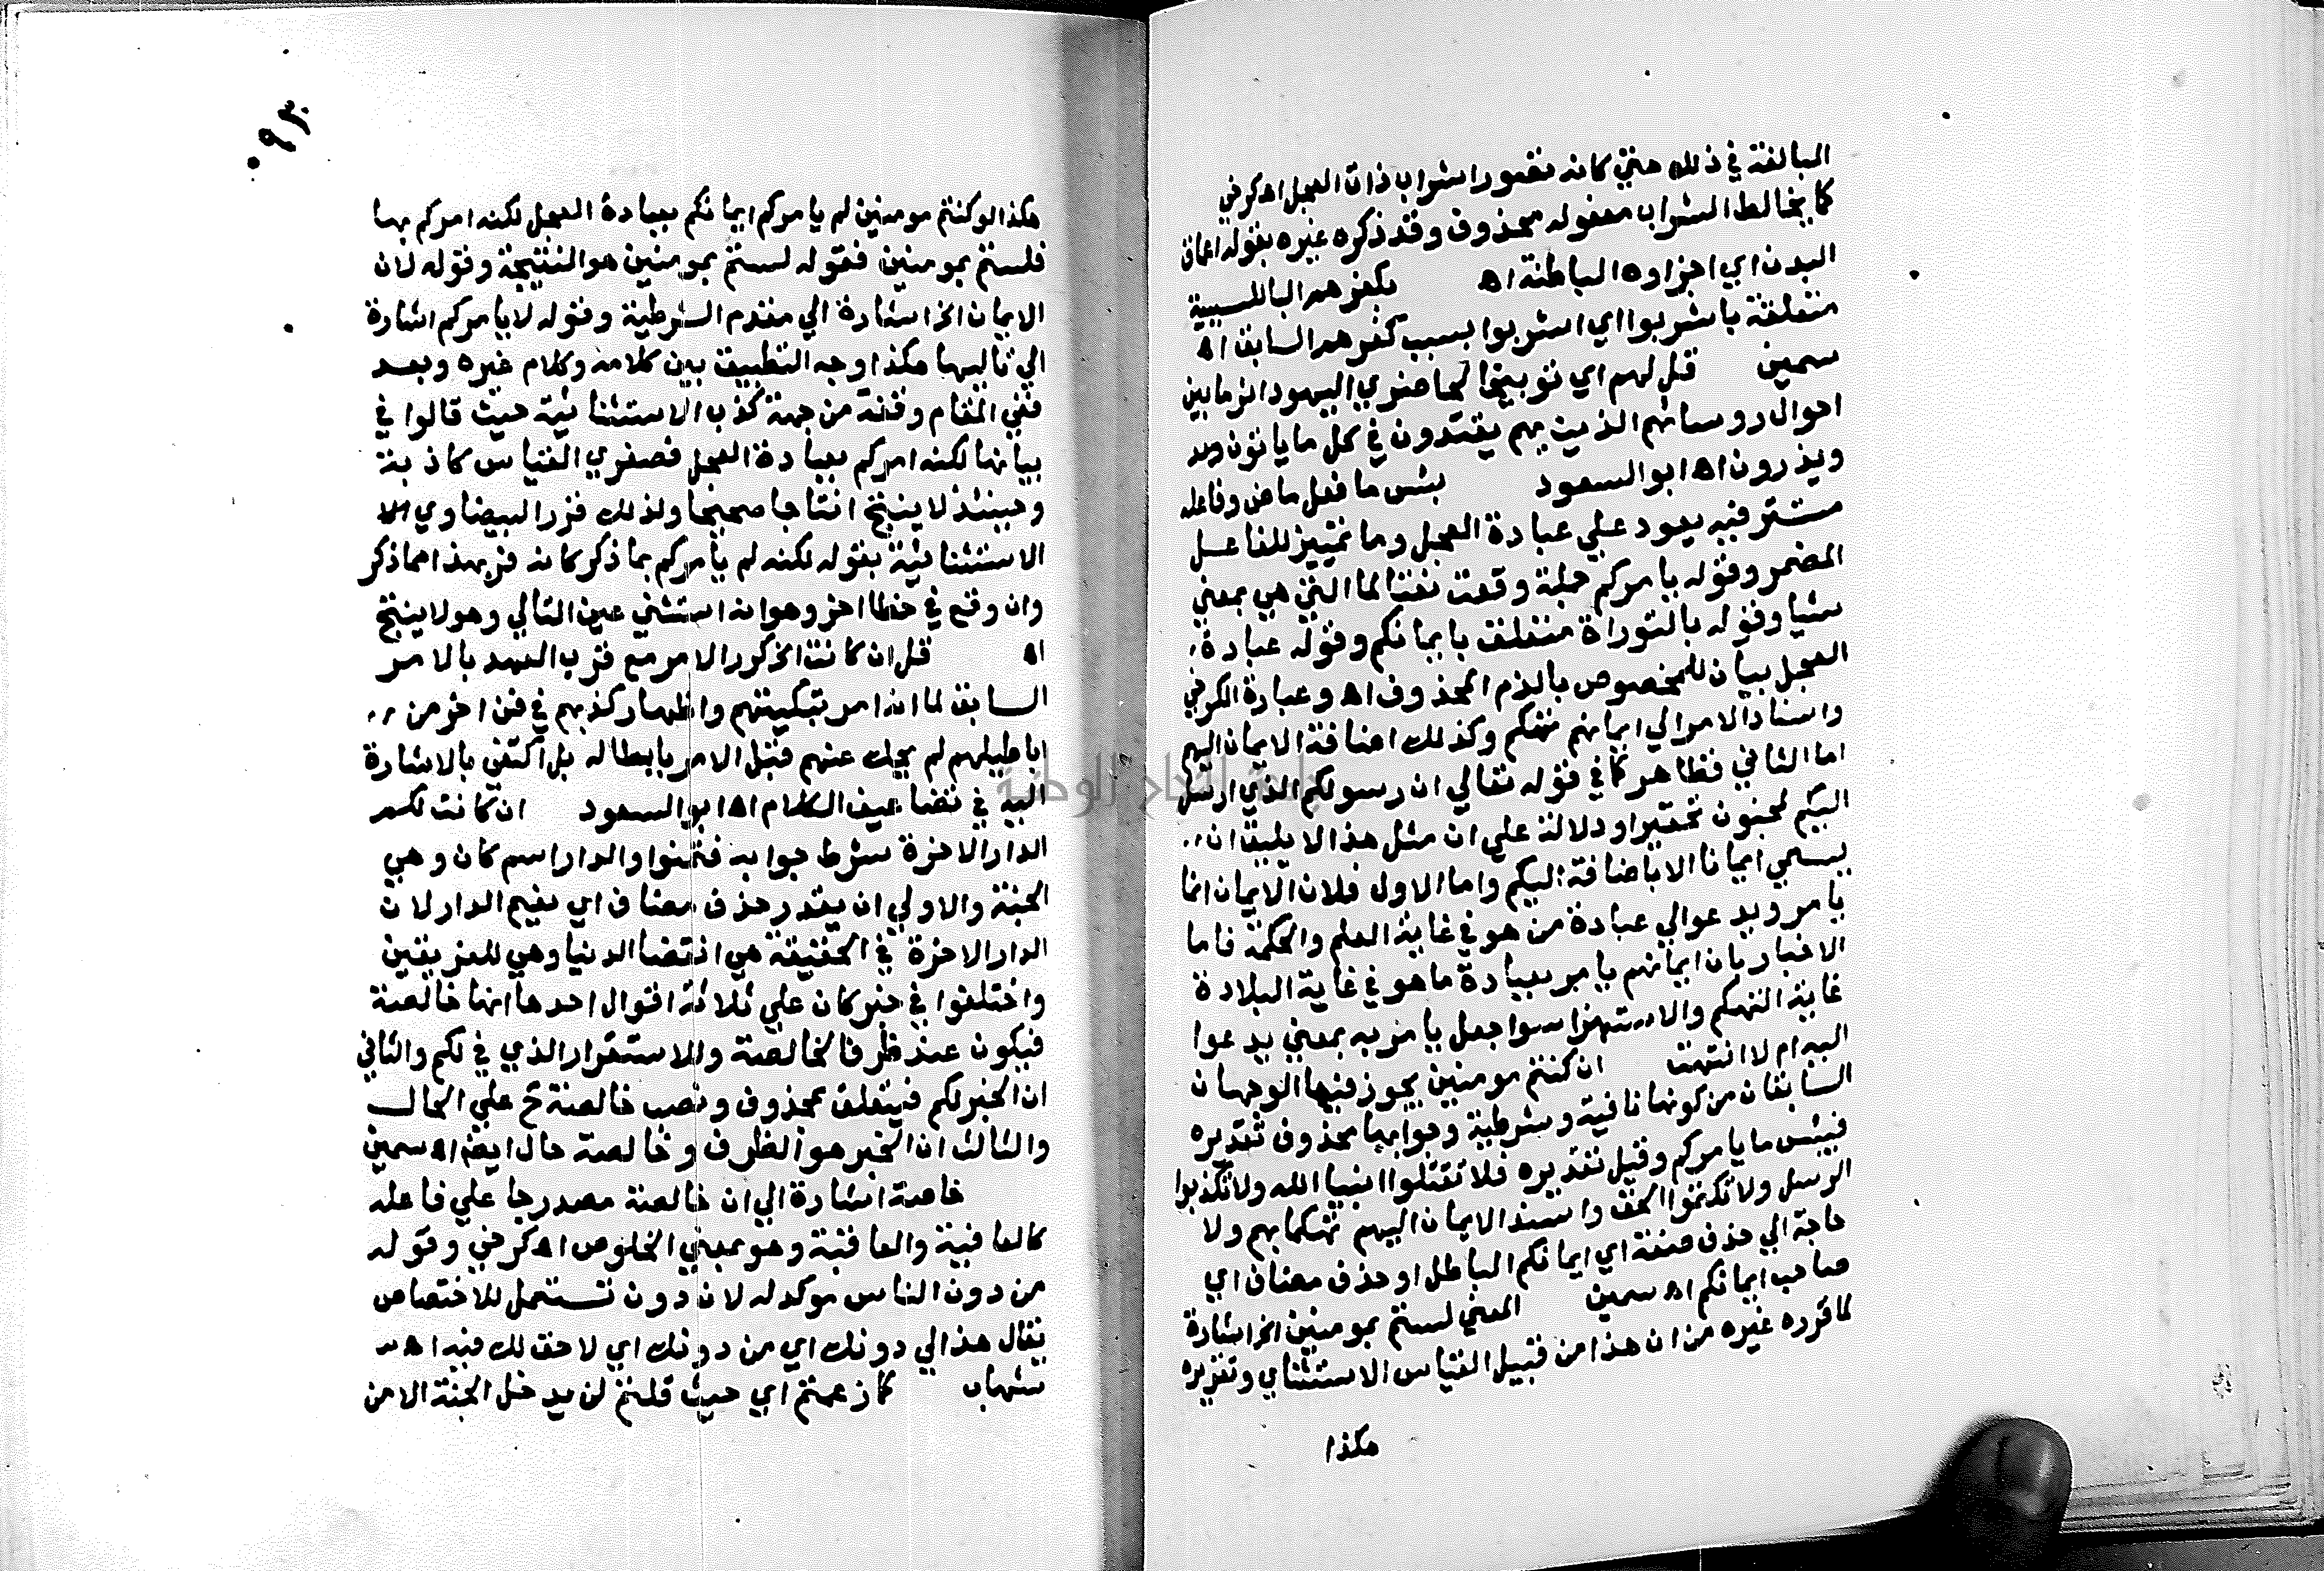 المبالغة في ذلك حتي كانه تصور اشراب ذات العجل اه كرخي
كما يخالط الشراب مفعوله محذوف وقد ذكره غيره بقوله اعماق
البدن اي اجزاوه الباطنة اه بكفرهم البا للسببية
متعلقة باشربوا اي اشربوا بسبب كفرهم السابق اه
سمين قل لهم اي توبيخا لحاضري اليهود اثر ما بين
احوال روسائهم الذين بهم يقتدون في كل ما ياتون وما
ويذرون اه ابو السعود بئس ما فعل ماض وفاعله
مستتر فيه يعود علي عبادة العجل وما تمييز للفاعل
المضمر وقوله يامركم جملة وقعت نعتا لما التي هي بمعني
شيا وقوله بالتوراة متعلق بايمانكم وقوله عبادة
العجل بيان للمخصوص بالذم المحذوف اه وعبارة الكرخي
واسناد الامر الي ايمانهم تهكم وكذلك اضافة الايمان اليهم
اما الثاني فظاهر كما في قوله تعالي ان رسولكم الذي ارسل
اليكم لمجنون تحقيرا ودلالة علي ان مثل هذا لا يليق ان
يسمي ايمانا الا باضافة اليكم واما الاول فلان الايمان انما
يامر ويدعوا الي عبادة من هو في غاية العلم والحكمة فاما
الاخبار بان ايمانهم يامر بعبادة ما هو في غاية البلادة
غاية التهكم والاستهزا سوا جعل يامر به بمعني يدعوا
اليه ام لا انتهت ان كنتم مومنين يجوز فيها الوجهان
السابقان من كونها نافية وشرطية وجوابها محذوف تقديره
فبئس ما يامركم وقيل تقديره فلا تقتلوا انبيا الله ولا تكذبوا
الرسل ولا تكتموا الحق واسند الايمان اليهم تهكما بهم ولا
حاجة الي حذف صفة اي ايمانكم الباطل او حذف مضاف اي
صاحب ايمانكم اه سمين المعني لستم بمومنين الخ اشارة
لما قرره غيره من ان هذا من قبيل القياس الاستثنائي وتقريره
هكذا
٠٩٣
هكذا لو كنتم مومنين لم يامركم ايمانكم بعبادة العجل لكنه امركم بها
فلستم بمومنين فقوله لستم بمومنين هو النتيجة وقوله لان
الايمان الخ اشارة الي مقدم الشرطية وقوله لا يامركم اشارة
الي تاليها هكذا وجه التطبيق بين كلامه وكلام غيره وبعد
ففي المقام وقفة من جهة كذب الاستثنائية حيث قالوا في
بيانها لكنه امركم بعبادة العجل فصغري القياس كاذبة
وحينئذ لا ينتج انتاجا صحيحا ولذلك قرر البيضاوي الا
الاستثنائية بقوله لكنه لم يامركم بما ذكر كانه فر بهذا مما ذكر
وان وقع في خطا اخر وهو انه استثني عين التالي وهو لا ينتج
اه قل ان كانت الخ كرر الامر مع قرب العهد بالامر
السابق لما انه امر بتبكيتهم واظهار كذبهم في فن اخر من
اباطيلهم لم يحك عنهم قبل الامر بابطاله بل اكتفي بالاشارة
اليه في تضاعيف الكلام اه ابو السعود ان كانت لكم
الدار الاخرة شرط جوابه فتمنوا والدار اسم كان وهي
الجنة والاولي ان يقدر حذف مضاف اي نعيم الدار لان
الدار الاخرة في الحقيقة هي انقضا الدنيا وهي للفريقين
واختلفوا في خبر كان علي ثلاثة اقوال احدها انها خالصة
فيكون عند ظرفا لخالصة وللاستقرار الذي في لكم والثاني
ان الخبر لكم فيتعلق بمحذوف ونصب خالصة ح علي الحال
والثالث ان الخبر هو الظرف وخالصة حال ايضا اه سمين
خاصة اشارة الي ان خالصة مصدر جا علي فاعله
كالعافية والعاقبة وهو بمعني الخلوص اه كرخي وقوله
من دون الناس موكد له لان دون تستعمل للاختصاص
يقال هذا لي دونك اي من دونك اي لا حق لك فيه اه
شهاب كما زعمتم اي حيث قلتم لن يدخل الجنة الا من
جامعة النجاح الوطنية